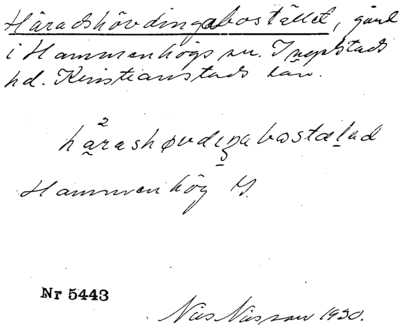 Häradshövdingabostället, gård
i Hammenhögs sn. Ingelstads
hd. Kristianstads län.
2
härashøvdiŋabostælad
Hammenhög
Nr 5443
Nils Nilsson 1930.